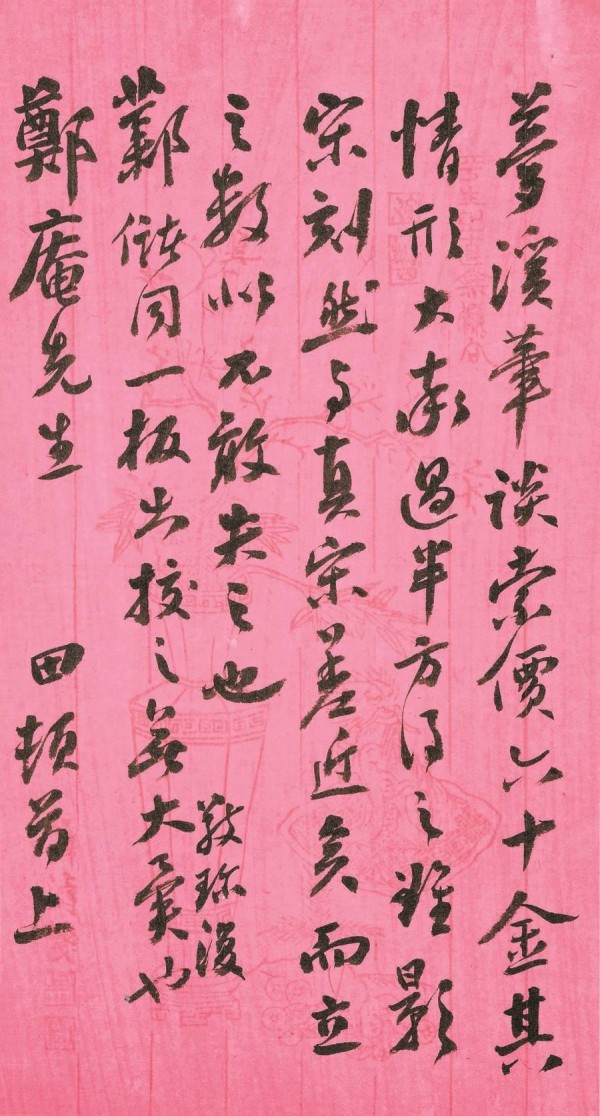 夢溪筆談索價六十金其
情形大率過半方得之雖影
宋刻然与真宋差近矣而立
之數似不敢失之也
鄴儲同一板出校之無大異也
鄭庵先生 田頓首上